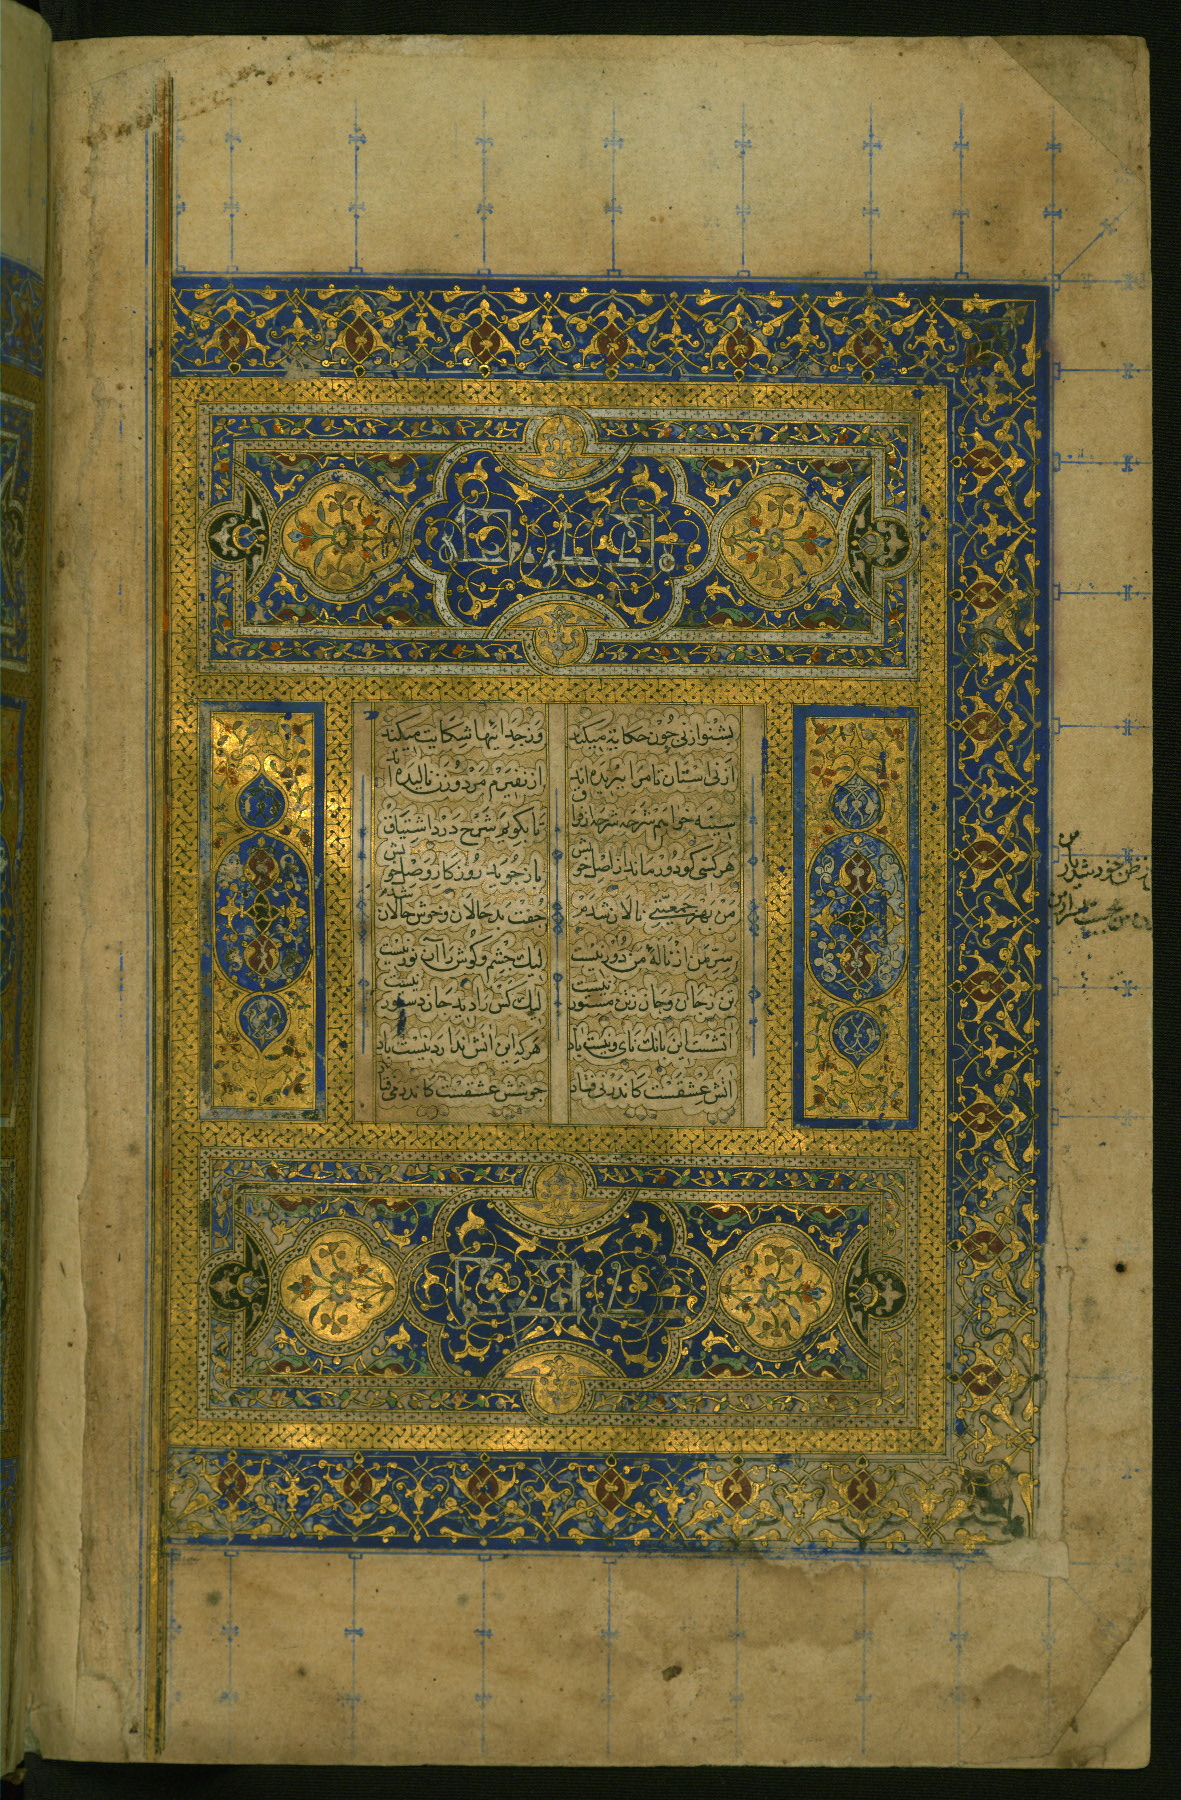 بشنو از نی چون حکایت میکند وز جداییها شکایت میکند
از نی ستان تا مرا ببریده اند از نفیرم مرد و زن نالیده اند
سینه خواهم شرحه شرحه از فراق تا بگویم شرح درد اشتیاق
هر کسی کو دور ماند از اصل خویش باز جوید روزگار وصل خویش
من بهر جمعیتی نالان شدم جفت بدحالان و خوش حالان شدم
سر من از نالۀ من دور نیست لیک چشم و گوش را آن نور نیست
تن ز جان و جان ز تن مستور نیست لیک کس را دید جان دستور نیست
آتشست این بانک نای و نیست باد هر که این آتش ندارد نیست باد
آتش عشقست کاندر نی فتاد جوشش عشقست کاندر می فتاد